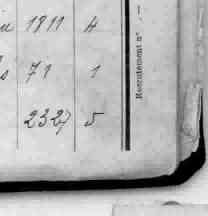 1811 4
71 1
2327 5
Recrutement n°